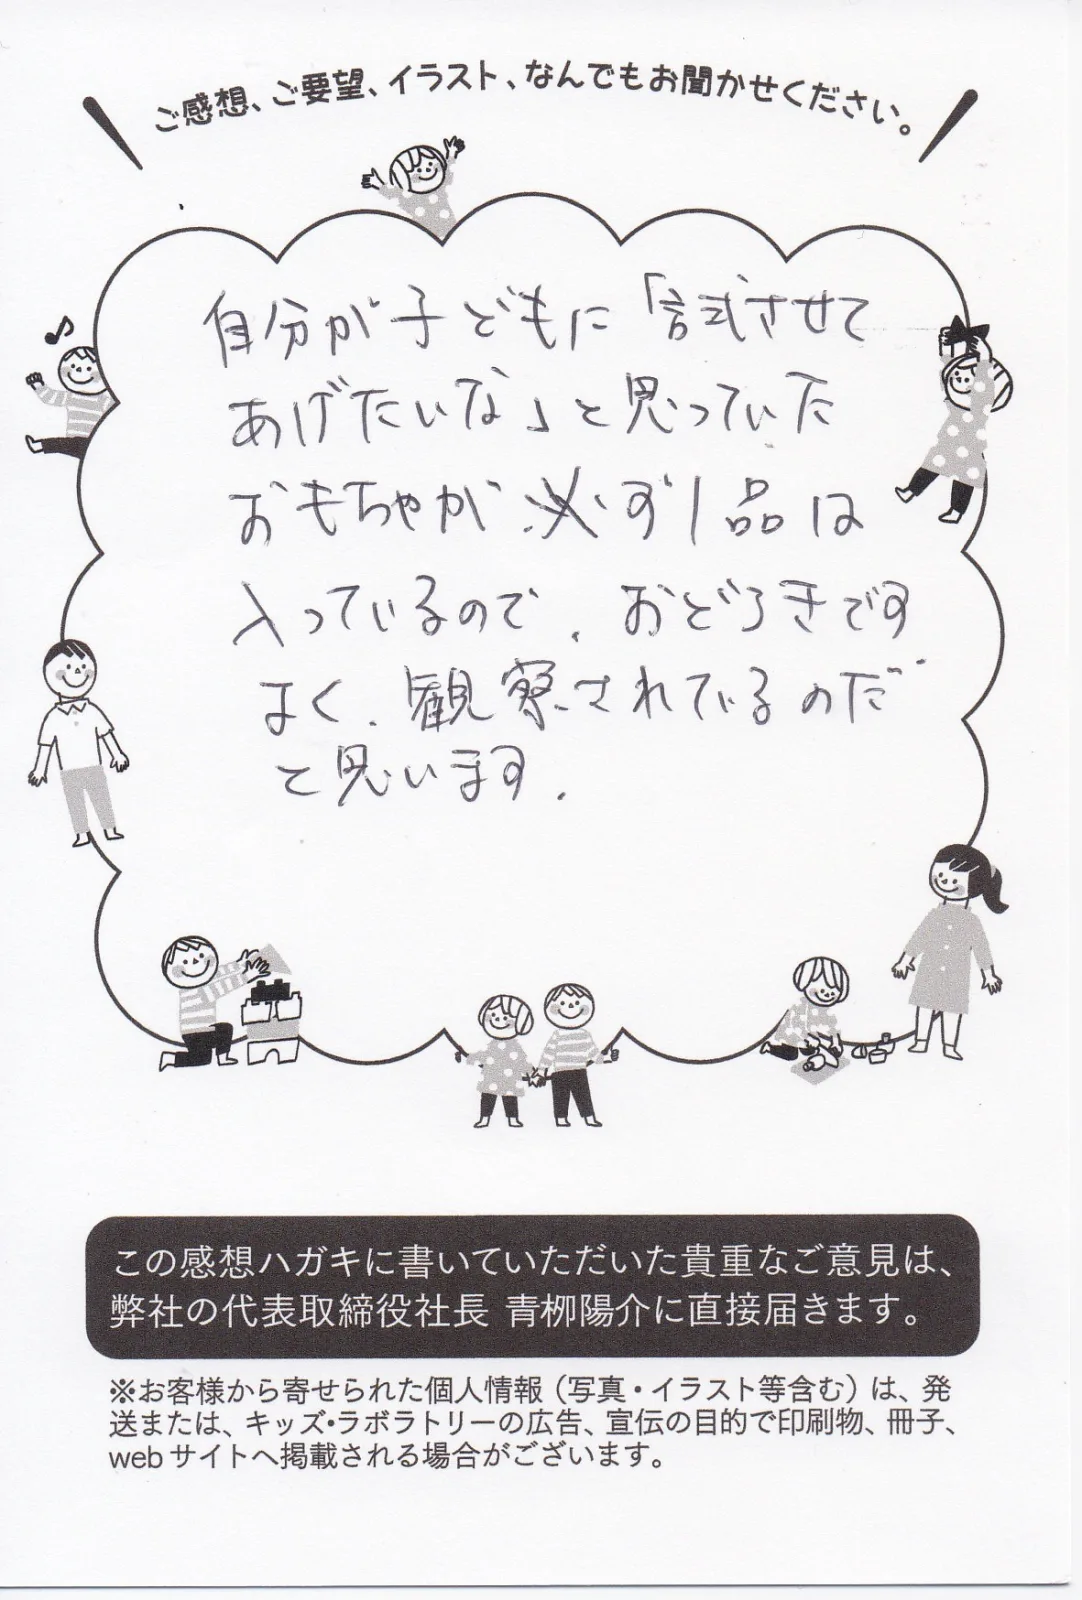 ご感想、ご要望、イラスト、なんでもお聞かせください。
自分が子どもに「試させて
あげたいな」と思っていた
おもちゃが必ず1品は
入っているので、おどろきです
よく、観察されているのだ
と思います.
この感想ハガキに書いていただいた貴重なご意見は、
弊社の代表取締役社長 青栁陽介に直接届きます。
※お客様から寄せられた個人情報（写真・イラスト等含む）は、発
送または、キッズ・ラボラトリーの広告、宣伝の目的で印刷物、冊子、
webサイトへ掲載される場合がございます。